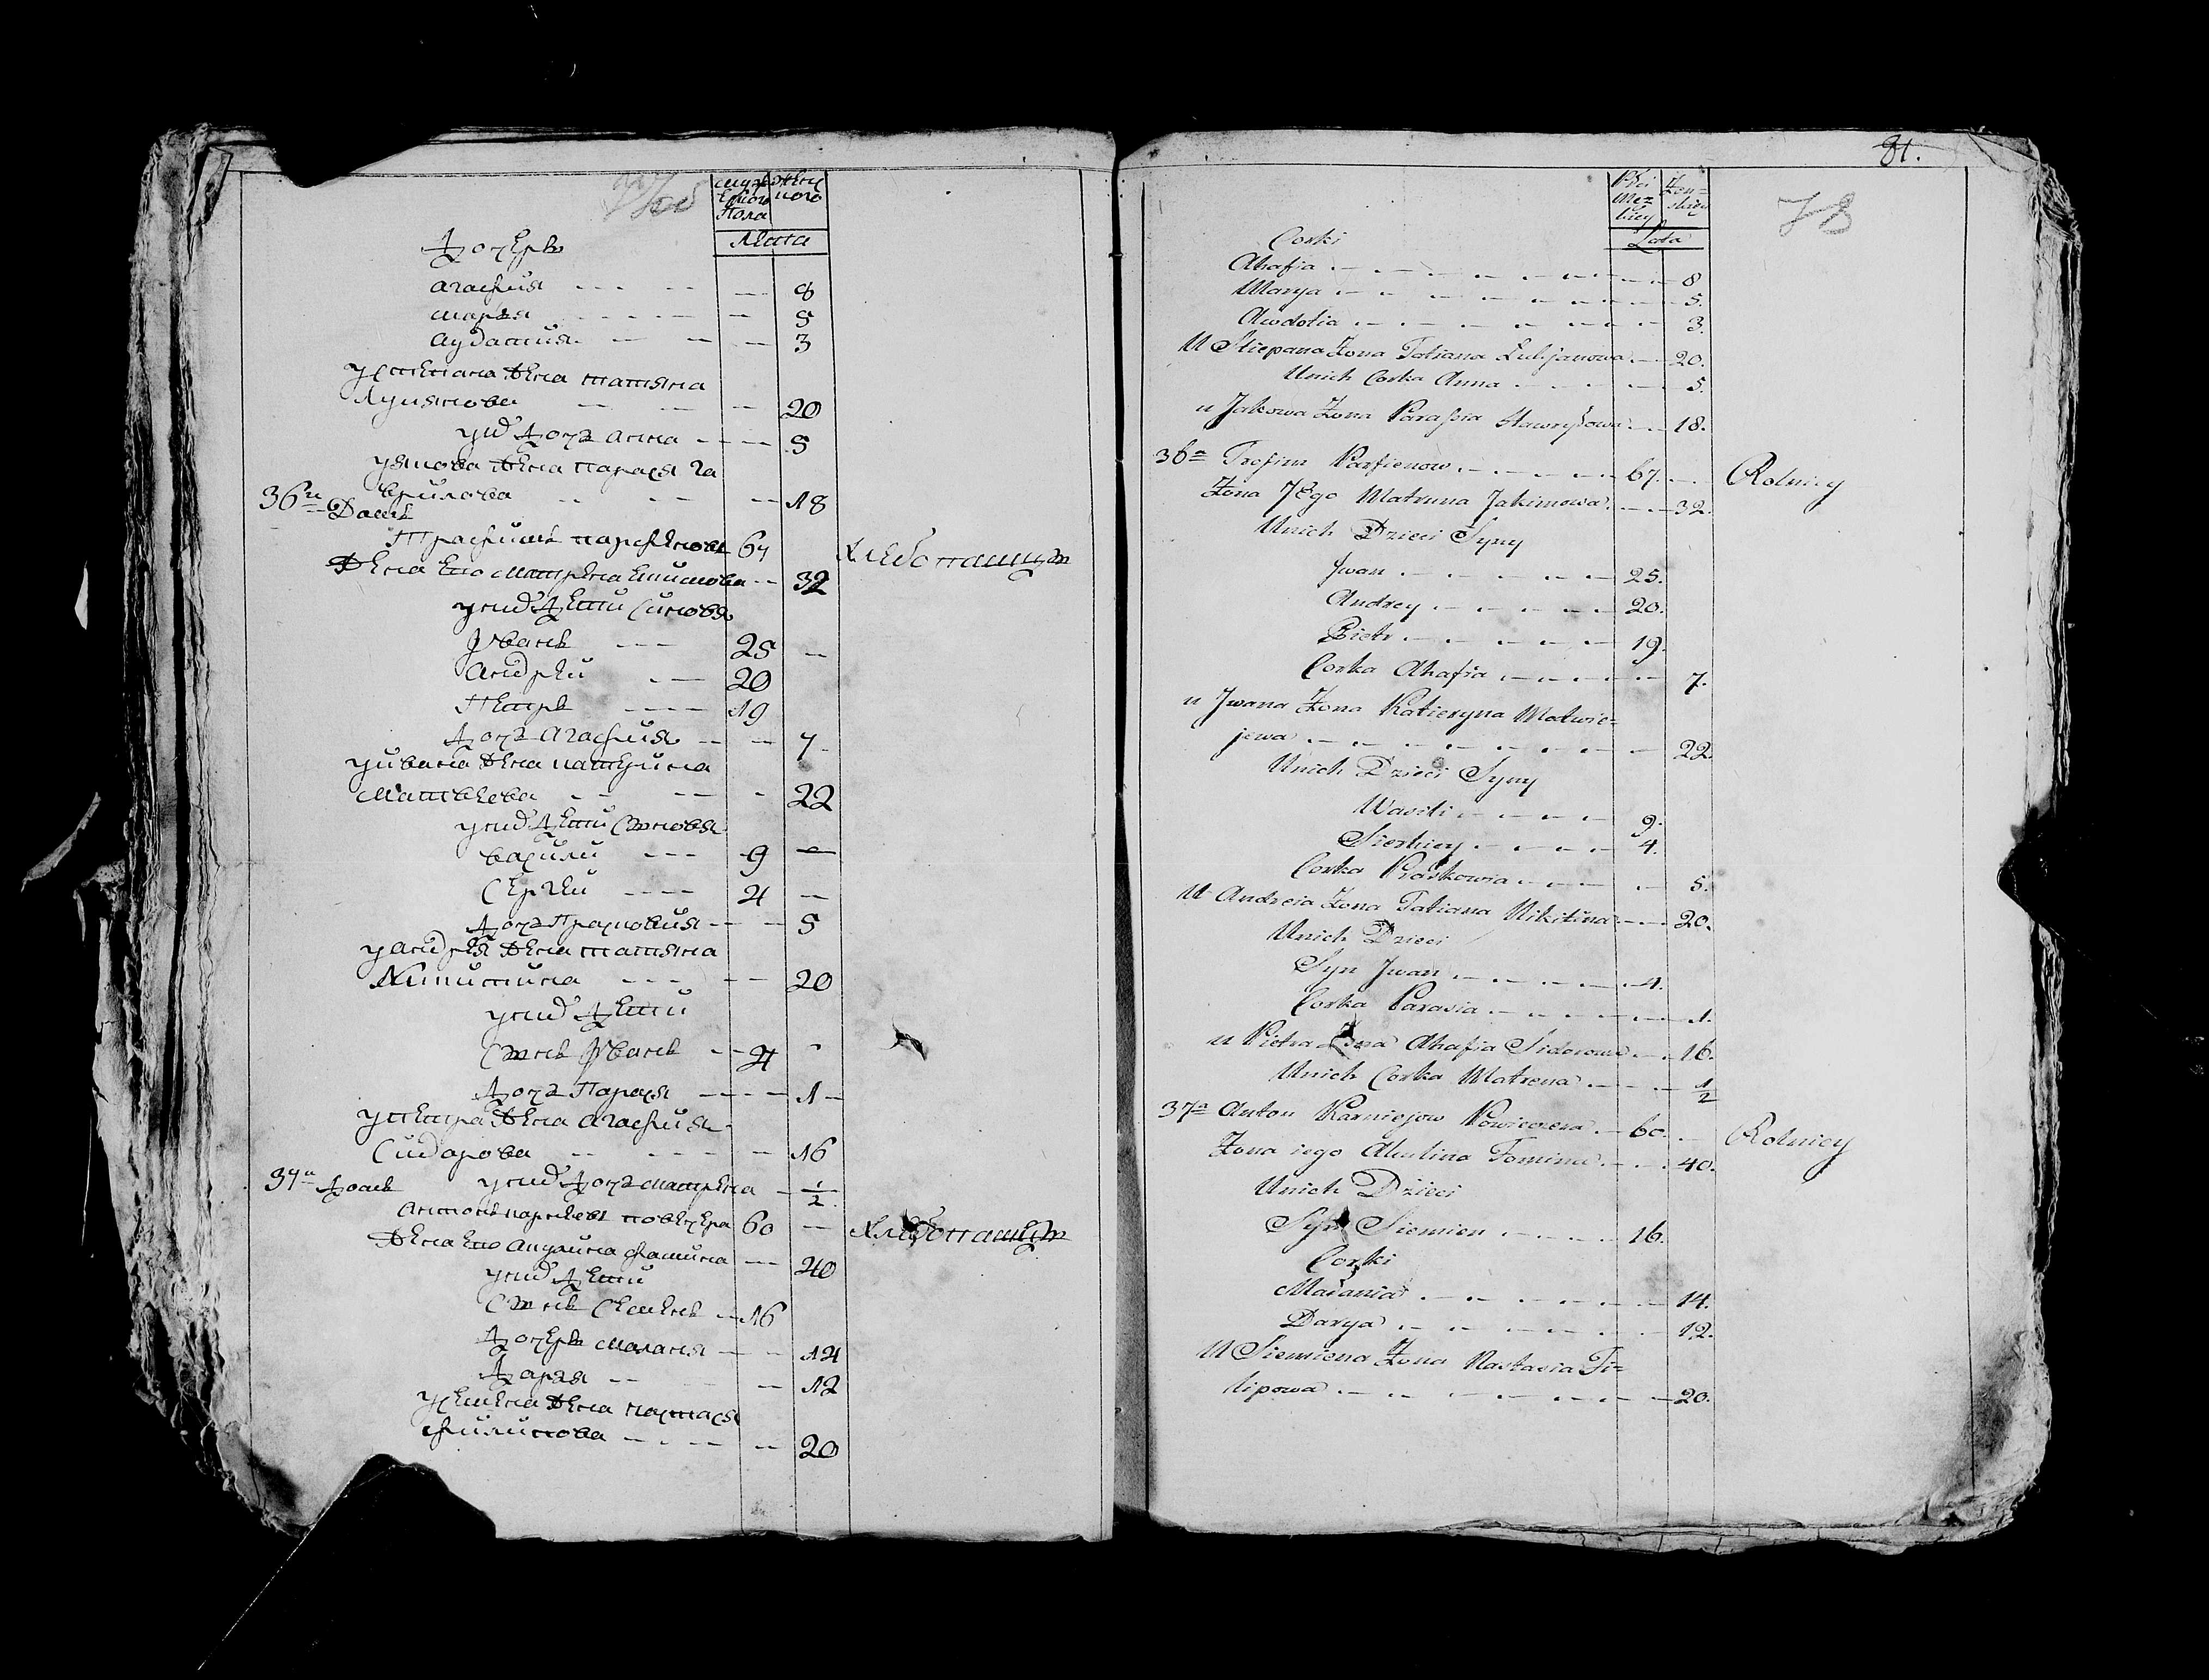 мужескаго Пола
женскаго
Лета
дочери
агафия --- -- — 8
маря - - - - — 5
аудотия — — — 3
устепана жена татяна
Лукянова -- — 20
у них доч анна - - — 5
уякова жена парася га
врилова -- -- — 18
36 Домъ
Трафимъ парфеновъ 67 Хлебопашецъ
жена ево матрена екимова -- 32
у них дети синовя
Иванъ --- 25 --
андреи - — 20
Петръ ---- 19
доч агафия -- — 7 -
у ивана жена катерина
Матвеева - - -- - 22
у них дети сыновя
василии --- 9 —
сергеи ---- 4 —
доч Прасковия -- — 5
у андрея жена татяна
Никитина --- - — 20
у них дети
сынъ Иванъ -- 4 -
доч Парася --- - 1 —
у петра жена агафия
Сидарова -- --- — 16
37 домъ
у них доч матрена — 1/2
антонъ карнеевъ повечера 60 — Хлебопашецъ
жена ево акулина фамина -- 40
у них дети
сынъ семенъ -- 16
дочери маланя -- - 14
даря -- — 12
усемена жена настася
филипова - - -- — 20
81.
78
Płci Męzkiey
Żenskiey
Lata
Corki
Ahafia . - - - - - - 8
Marya - - - - - - 5.
Awdotia . - - - - - 3.
U Stiepana Żona Tatiana Lukjanowa. - - 20.
Unich Corka Anna . - - - 5.
u Jakowa Żona Parassia Hawryłowa - - 18.
36a Trofim Parfienow . - - - - 67. - Rolnicy
Żona Jego Matruna Jakimowa. - - 32.
Unich Dzieci Syny
Jwan . - - - - - 25.
Andrey . - - - - 20.
Pietr . - - - - 19.
Corka Ahafia . - - - - 7.
u Jwana Żona Katieryna Matwie=
jewa . - - - - - - - 22.
Unich Dzieci Syny
Wasili . - - - - 9.
Sierhiey . - - - - 4.
Corka Praskowia . - - - - 5.
U Andreia Żona Tatiana Nikitina - - 20.
Unich Dzieci
Syn Jwan . - - - - 4.
Corka Parasia . - - - - - 1.
u Pietra Żona Ahafia Sidorowa - - 16.
Unich Corka Matrena . - - - 1/2
37a Anton Karniejow Powieczera - 60. - Rolnicy
Żona iego Akulina Fomina . - - 40.
Unich Dzieci
Syn Siemien . - - - - 16.
Corki
Małania . - - - - - - 14.
Darya . - - - - - - 12.
U Siemiena Żona Nastasia Fi=
lipowa . - - - - - - - 20.